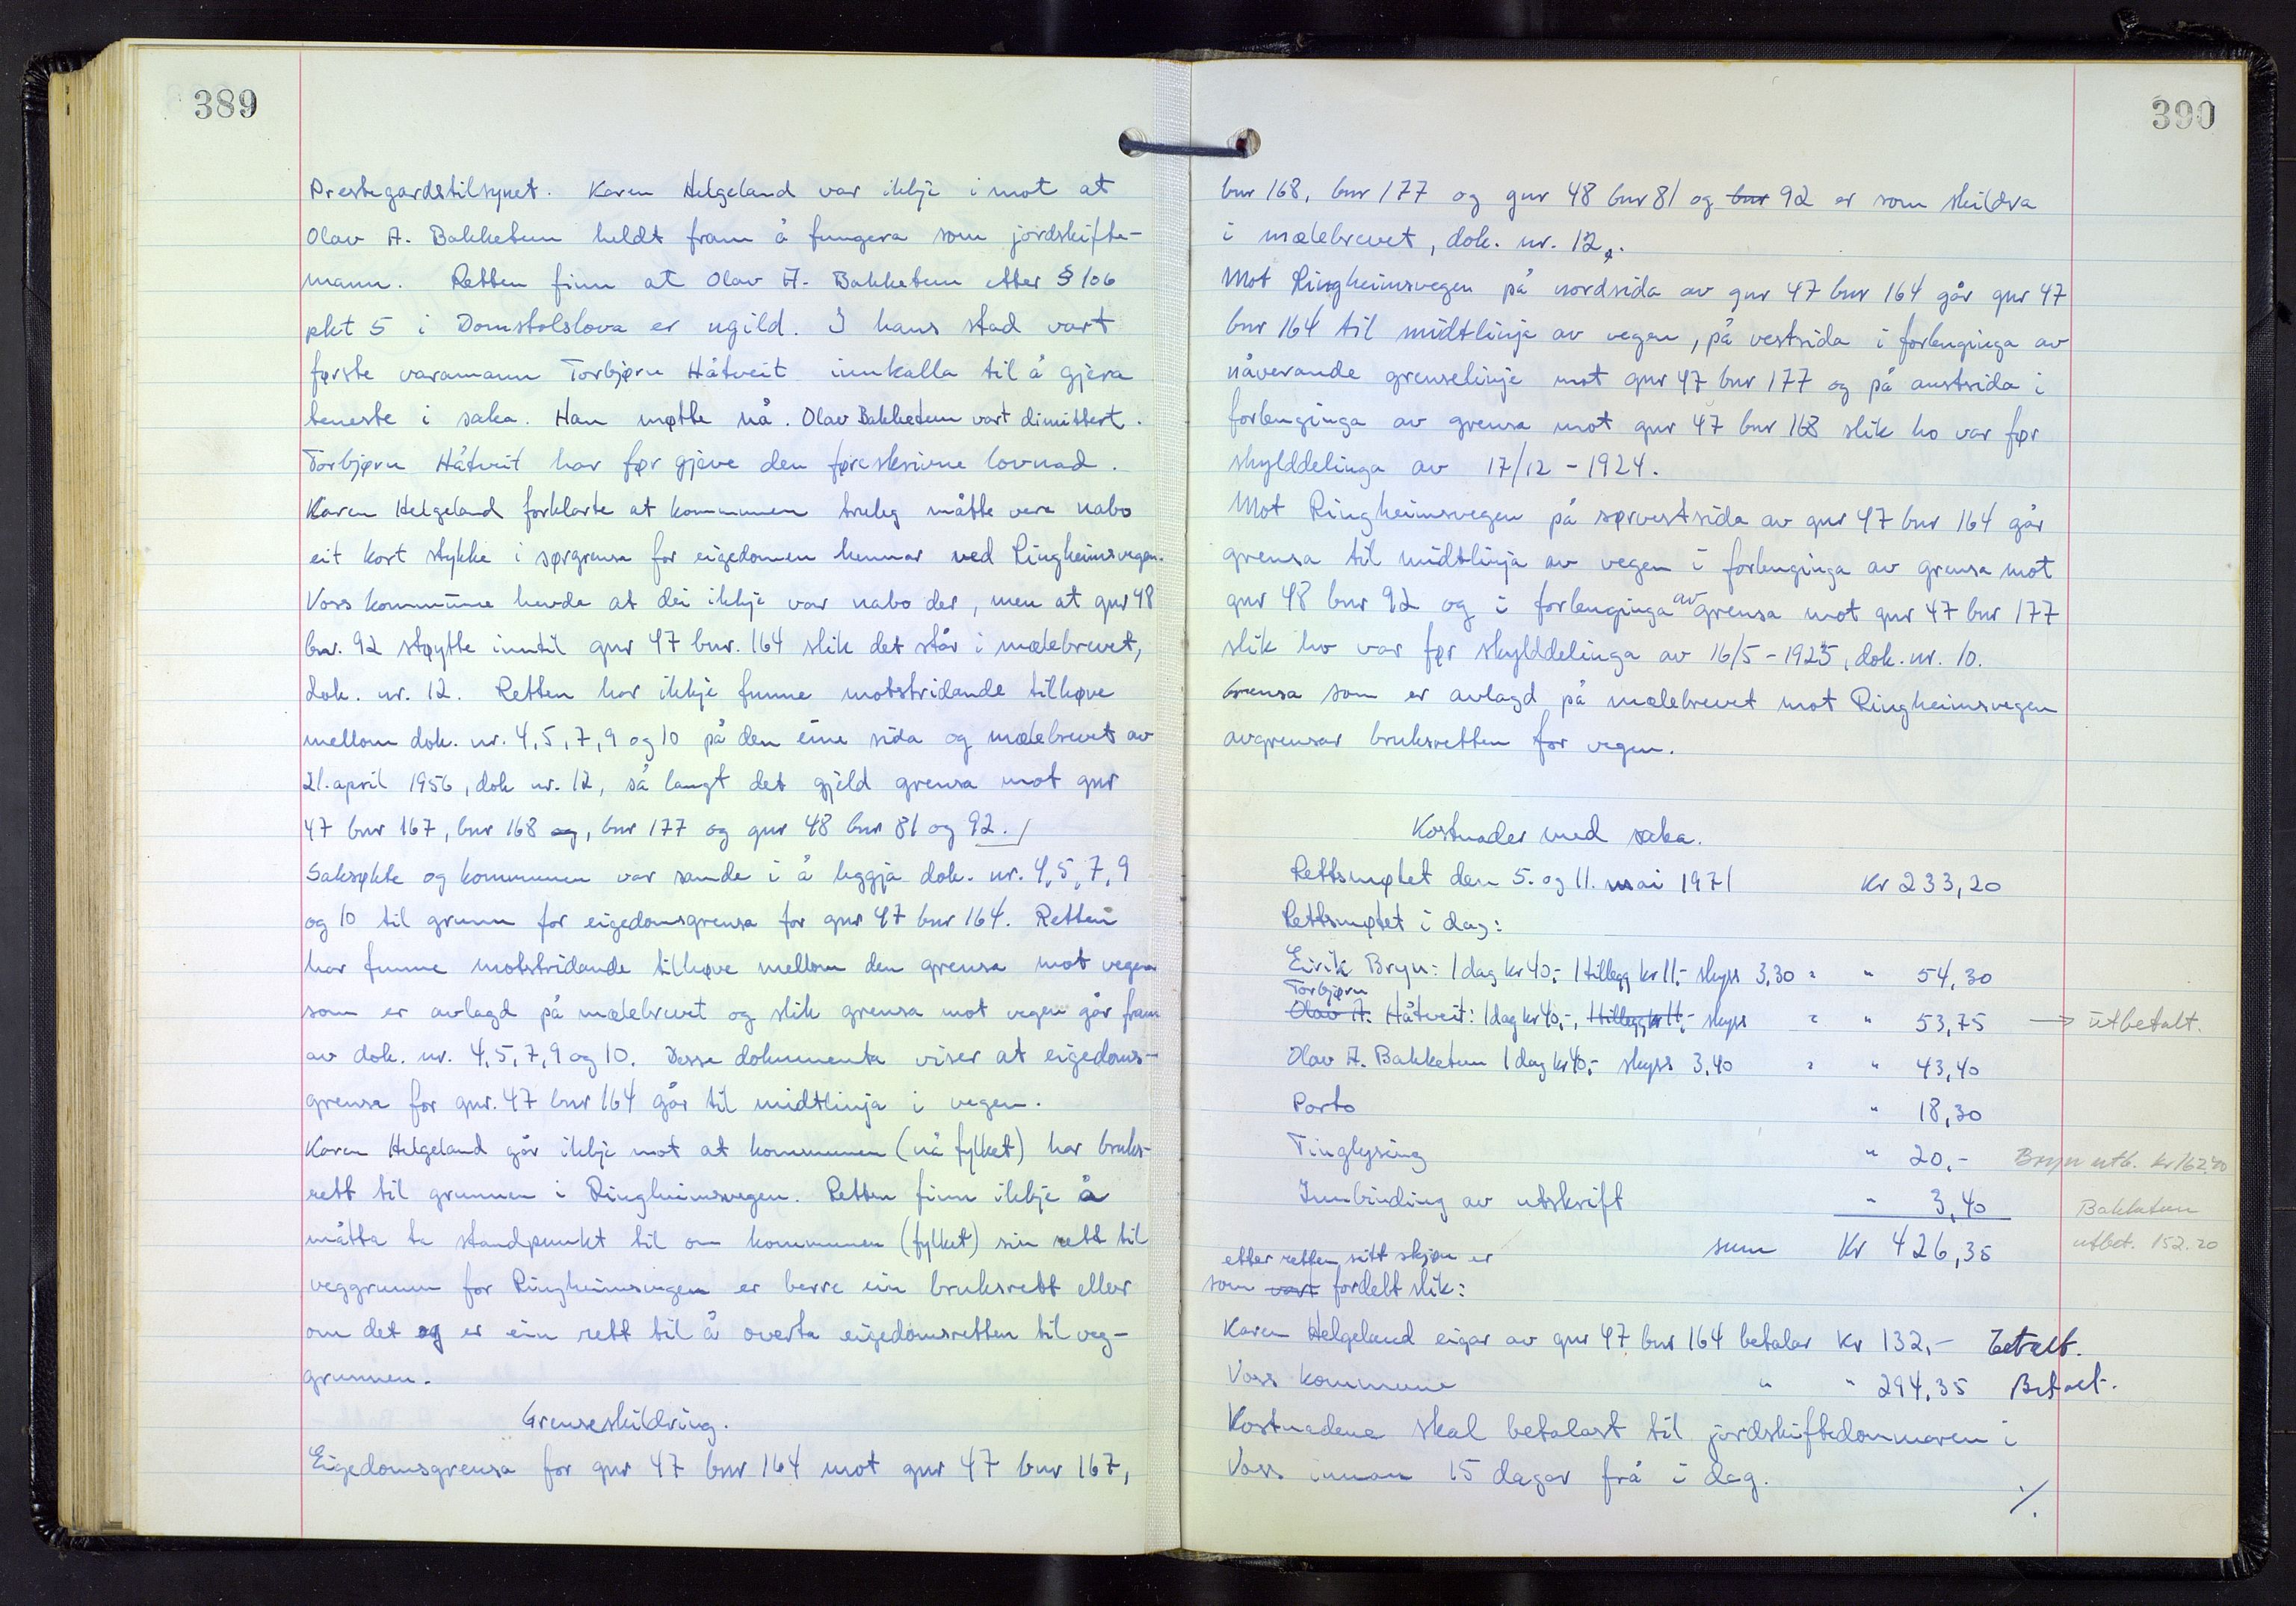 389
Prestegardstilsynet. Karen Helgeland var ikkje i mot at
Olav A. Bakketun heldt fram å fungera som jordskifte-
mann. Retten finn at Olav A. Bakketun etter § 106
pkt 5 i Domstolslova er ugild. I hans stad vart
første varamann Torbjørn Håtveit innkalla til å gjera
teneste i saka. Han møtte nå. Olav Bakketun vart dimittert.
Torbjørn Håtveit har før gjeve den føreskrivne lovnad.
Karen Helgeland forklarte at kommunen truleg måtte vera nabo
eit kort stykke i sørgrensa for eigedomen hennar ved Ringheimsvegen.
Voss kommune hevda at dei ikkje var nabo der, men at gnr 48
bnr. 92 støytte inntil gnr 47 bnr. 164 slik det står i mælebrevet,
dok. nr. 12. Retten har ikkje funne motstridande tilhøve
mellom dok. nr. 4, 5, 7, 9 og 10 på den eine sida og mælebrevet av
21. april 1956, dok nr. 12, så langt det gjeld grensa mot gnr
47 bnr 167, bnr 168 og, bnr 177 og gnr 48 bnr 81 og 92.
Saksøkte og kommunen var samde i å leggja dok. nr. 4, 5, 7, 9
og 10 til grunn for eigedomsgrensa for gnr 47 bnr 164. Retten
har funne motstridande tilhøve mellom den grensa mot vegen
som er avlagd på mælebrevet og slik grensa mot vegen går fram
av dok. nr. 4, 5, 7, 9 og 10. Desse dokumenta viser at eigedoms-
grensa for gnr. 47 bnr 164 går til midtlinja i vegen.
Karen Helgeland går ikkje mot at kommunen (nå fylket) har bruks-
rett til grunnen i Ringheimsvegen. Retten finn ikkje å
måtta ta standpunkt til om kommunen (fylket) sin rett til
veggrunn for Ringheimsvegen er berre ein bruksrett eller
om det og er ein rett til å overta eigedomsretten til veg-
grunnen.
Grenseskildring.
Eigedomsgrensa for gnr 47 bnr 164 mot gnr 47 bnr 167,
390
bnr 168, bnr 177 og gnr 48 bnr 81 og bnr 92 er som skildra
i mælebrevet, dok. nr. 12.
Mot Ringheimsvegen på nordsida av gnr 47 bnr 164 går gnr 47
bnr 164 til midtlinje av vegen, på vestsida i forlenginga av
nåverande grenselinje mot gnr 47 bnr 177 og på austsida i
forlenginga av grensa mot gnr 47 bnr 168 slik ho var før
skylddelinga av 17/12 - 1924.
Mot Ringheimsvegen på sørvestsida av gnr 47 bnr 164 går
grensa til midtlinja av vegen i forlenginga av grensa mot
gnr 48 bnr 92 og i forlenginga av grensa mot gnr 47 bnr 177
slik ho var før skylddelinga av 16/5 - 1925, dok. nr. 10.
Grensa som er avlagd på mælebrevet mot Ringheimsvegen
avgrensar bruksretten for vegen.
Kostnader med saka.
Rettsmøtet den 5. og 11. mai 1971 Kr 233,20
Rettsmøtet i dag:
Eirik Bryn: 1 dag kr 40,- 1 tillegg kr 11,- skyss 3,30 = " 54,30
Torbjørn
Olav A. Håtveit: 1 dag kr 40,-, 1 tillegg kr 11,- skyss = " 53,75 → utbetalt.
Olav A. Bakketun 1 dag kr 40,- skyss 3,40 = " 43,40
Porto " 18,30
Tinglysing " 20,- Bryn utb. kr 162,40
Innbinding av utskrift - 3,40 Bakketun
sum Kr 426,35 utbet. 152.20
etter retten sitt skjøn er
som vart fordelt slik:
Karen Helgeland eigar av gnr 47 bnr 164 betalar kr 132,- betalt.
Voss kommune " " 294,35 Betalt.
Kostnadene skal betalast til jordskiftedommaren i
Voss innan 15 dagar frå i dag.
./.